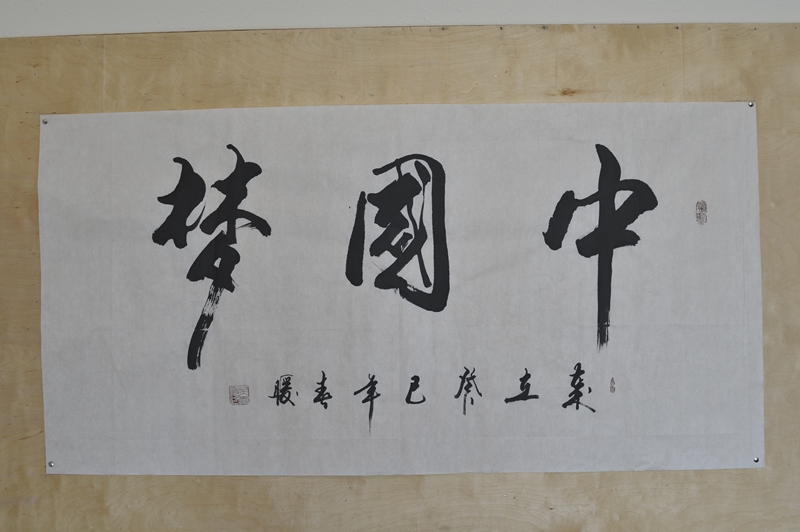 中國梦
立癸巳年春暖